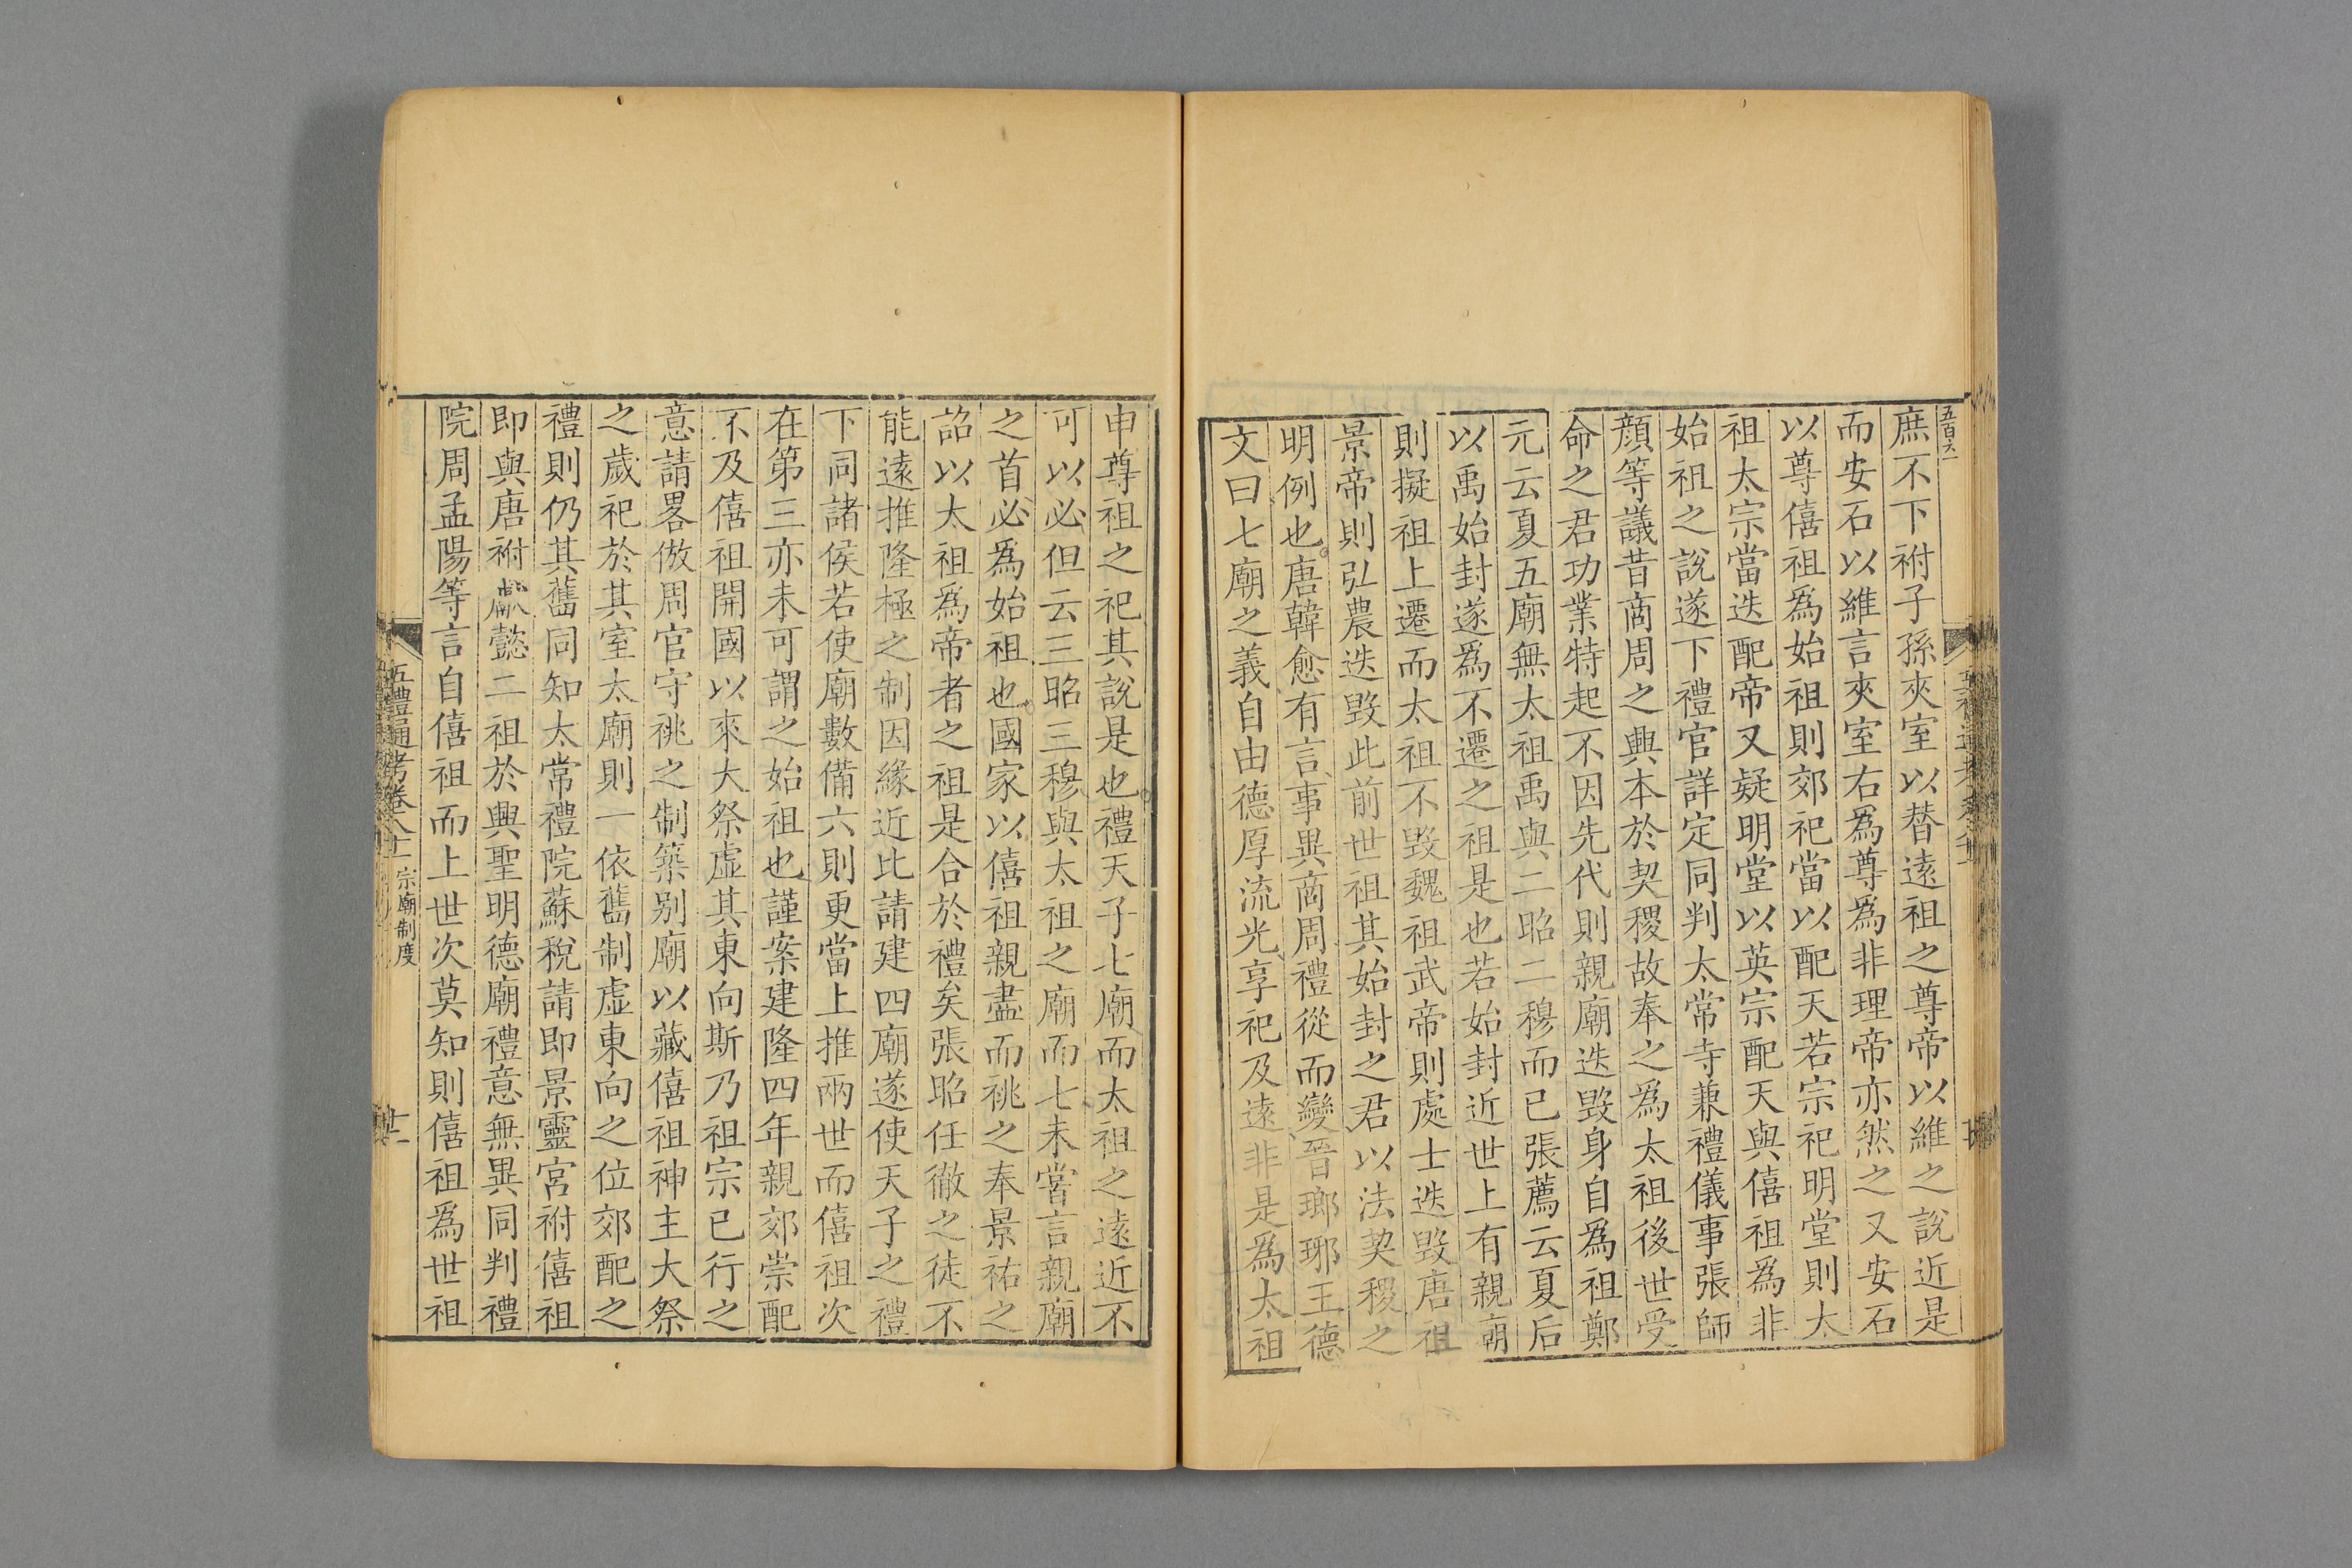 庶不下祔子孫夾室以替遠祖之尊帝以維之說近是
而安石以維言夾室右爲尊爲非理帝亦然之又安石
以尊僖祖爲始祖則郊祀當以配天若宗祀明堂則太
祖太宗當迭配帝又疑明堂以英宗配天與僖祖爲非
始祖之說遂下禮官詳定同判太常寺兼禮儀事張師
顏等議昔商周之興本於契稷故奉之爲太祖後世受
命之君功業特起不因先代則親廟迭毀身自爲祖鄭
元云夏五廟無太祖禹與二昭二穆而已張薦云夏后
以禹始封遂爲不遷之祖是也若始封近世上有親廟
則擬祖上遷而太祖不毀魏祖武帝則處士迭毀唐祖
景帝則弘農迭毀此前世祖其始封之君以法契稷之
明例也唐韓愈有言事異商周禮從而變晉瑯琊王德
文曰七廟之義自由德厚流光享祀及遠非是爲太祖
申尊祖之祀其說是也禮天子七廟而太祖之遠近不
可以必但云三昭三穆與太祖之廟而七未嘗言親廟
之首必爲始祖也國家以僖祖親盡而祧之奉景祐之
詔以太祖爲帝者之祖是合於禮矣張昭任徹之徒不
能遠推隆極之制因緣近比請建四廟遂使天子之禮
下同諸侯若使廟數備六則更當上推兩世而僖祖次
在第三亦未可謂之始祖也謹案建隆四年親郊崇配
不及僖祖開國以來大祭虛其東向斯乃祖宗已行之
意請畧倣周官守祧之制築别廟以藏僖祖神主大祭
之歲祀於其室太廟則一依舊制虛東向之位郊配之
禮則仍其舊同知太常禮院蘇稅請即景靈宮祔僖祖
即與唐祔獻懿二祖於興聖明德廟禮意無異同判禮
院周孟陽等言自僖祖而上世次莫知則僖祖爲世祖
五禮通考卷八十一 宗廟制度